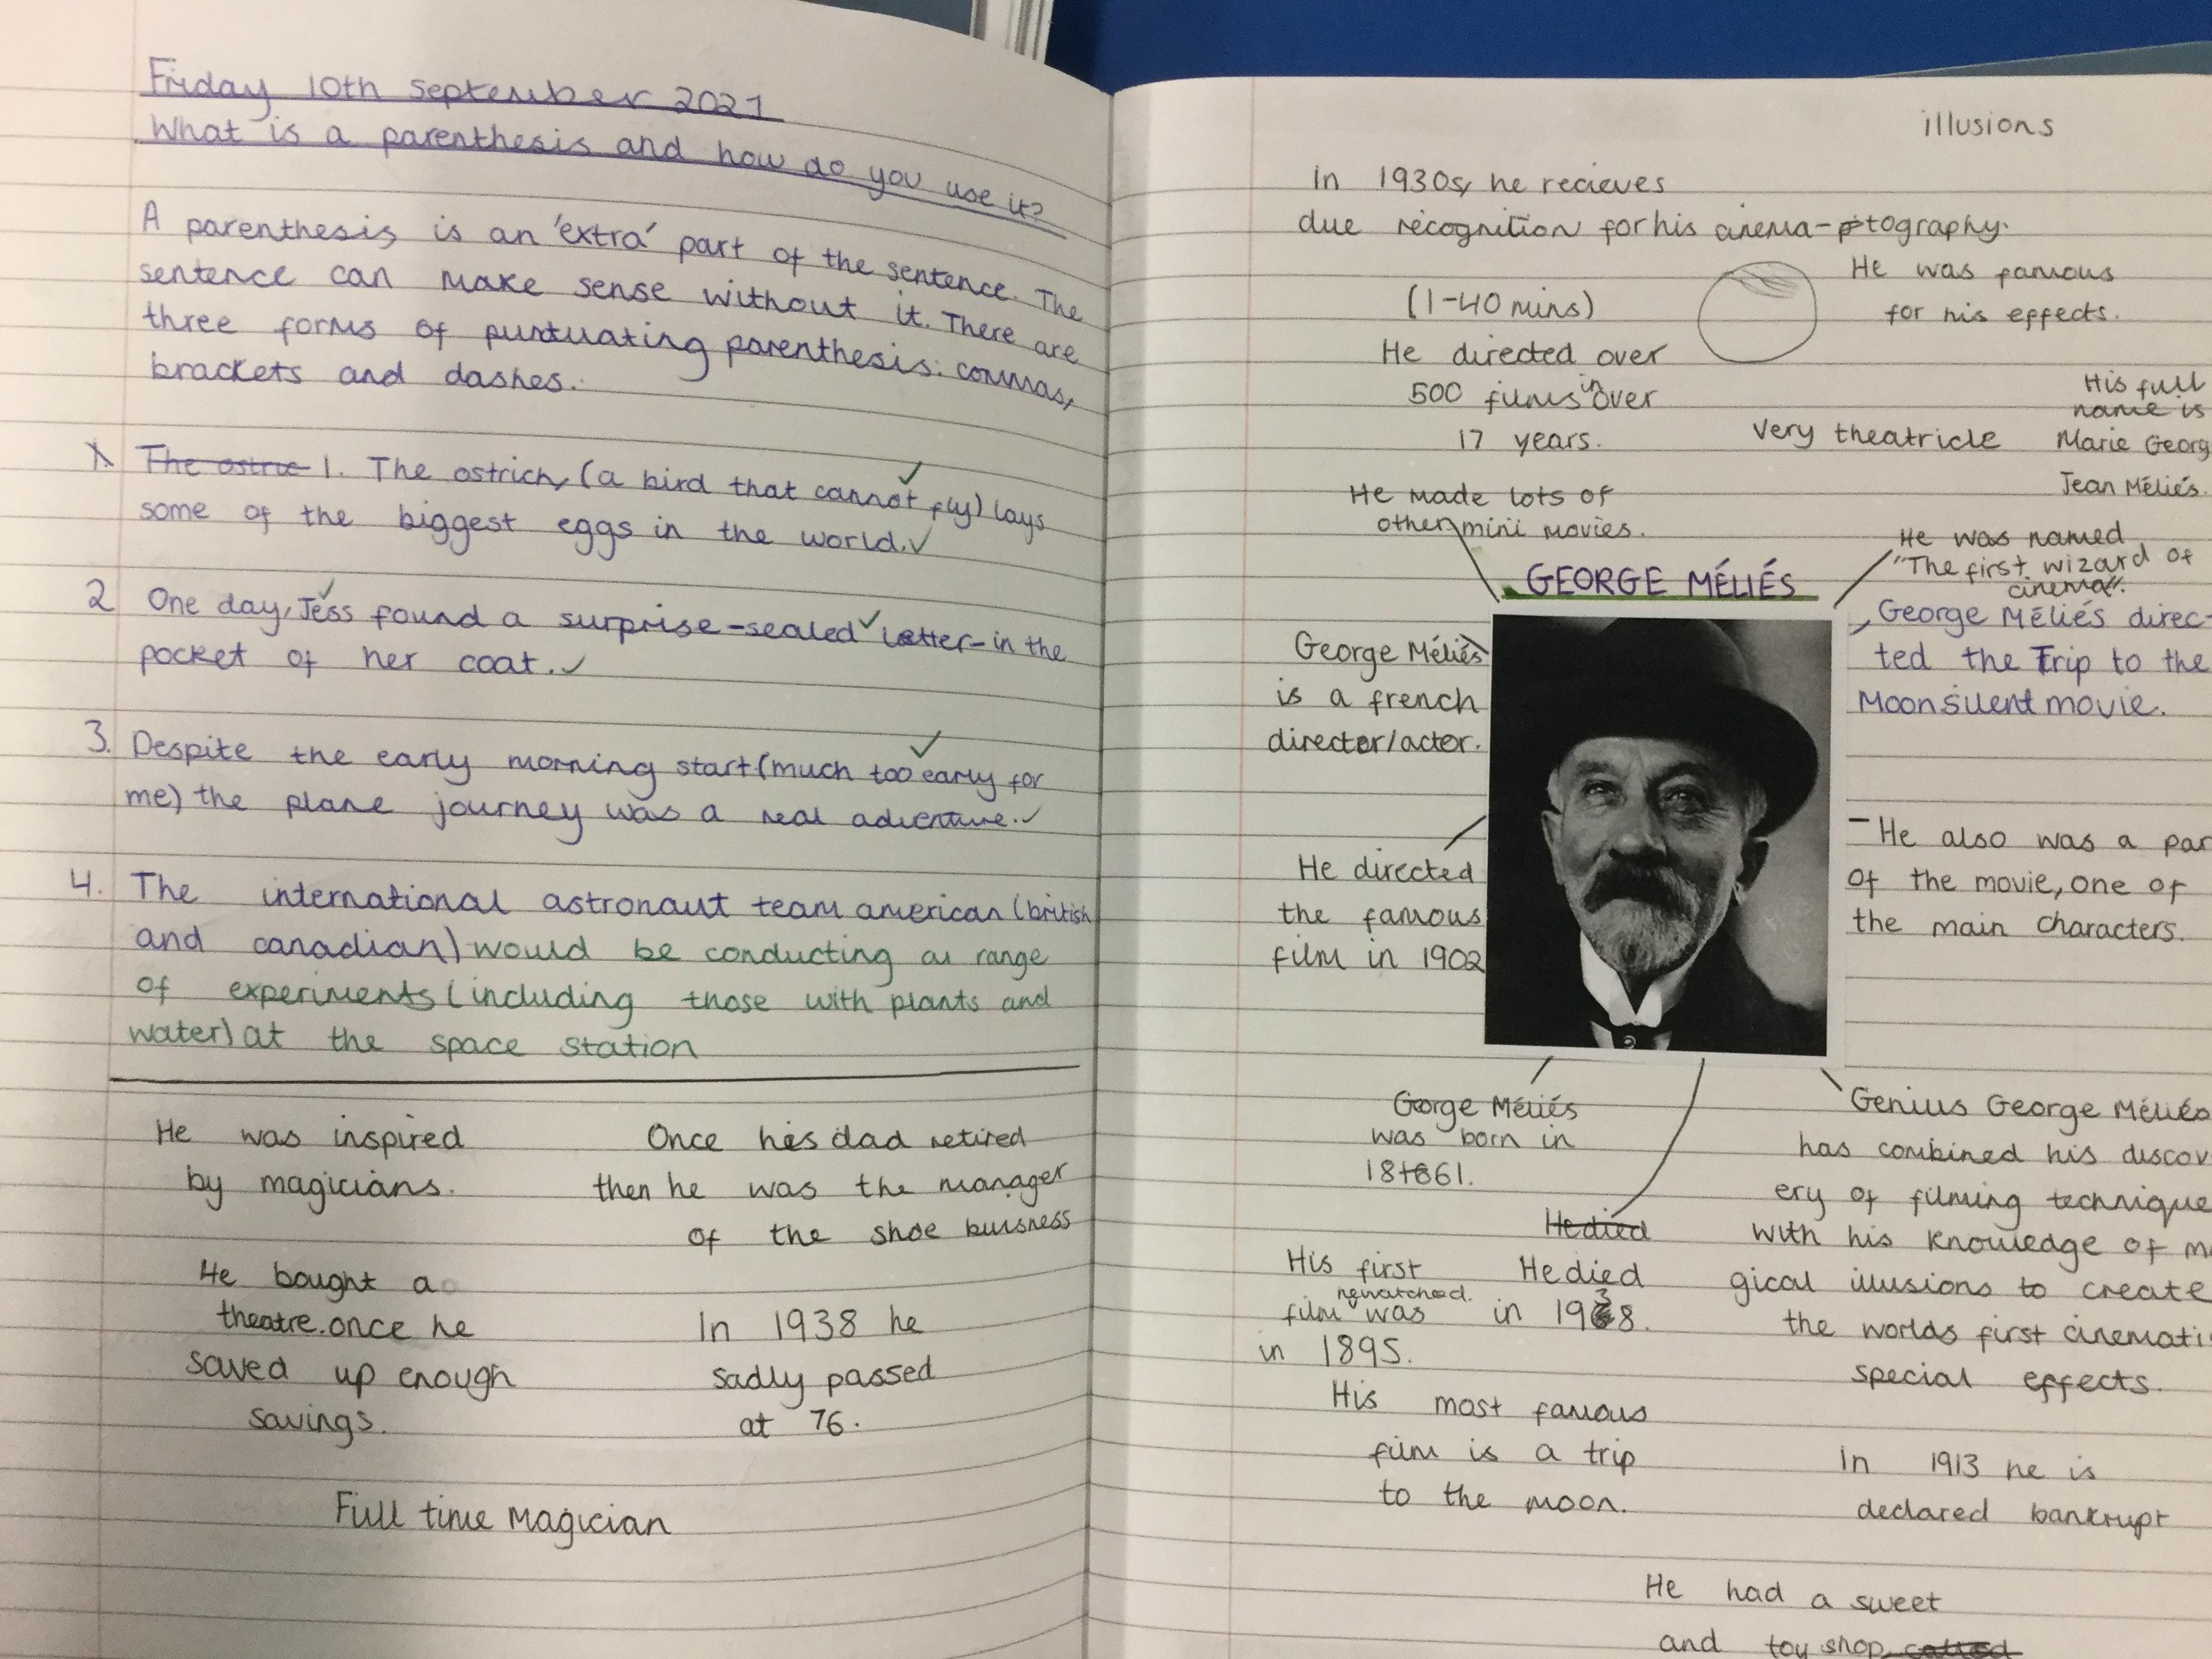 Friday 10th September 2021
What is a parenthesis and how do you use it?
A parenthesis is an 'extra' part of the sentence. The
sentence can make sense without it. There are
three forms of puntuating parenthesis: commas,
brackets and dashes.
1. The ostrich, (a bird that cannot fly) lays
some of the biggest eggs in the world.
2 One day, Jess found a surprise-sealed letter-in the
pocket of her coat.
3. Despite the early morning start (much too early for
me) the plane journey was a real adventure.
4. The international astronaut team american (british
and canadian) would be conducting a range
of experiments (including those with plants and
water) at the space station
He was inspired
by magicians.
Once his dad retired
then he was the manager
of the shoe buisness
He bought a
theatre.once he
saved up enough
savings.
In 1938 he
sadly passed
at 76.
Full time Magician
illusions
In 1930s, he recieves
due recognition for his cinema-tography.
He was famous
for his effects.
(1-40 mins)
He directed over
500 films in over
17 years.
very theatricle
His full
name is
Marie Georg
Jean Méliés.
He made lots of
other mini movies.
He was named
"The first wizard of
cinema".
GEORGE MÉLIÉS
George Méliés direc-
ted the Trip to the
Moon silent movie.
George Méliés
is a french
director/actor.
He also was a par
of the movie, one of
the main characters.
He directed
the famous
film in 1902
Gorge Méliés
was born in
1861.
Genius George Méliés
has combined his discov
ery of filming technique
with his knowledge of ma
gical illusions to create
the worlds first cinemati
special effects.
He died
He died
in 1938.
His first
film was rewatched.
in 1895.
His most famous
film is a trip
to the moon.
In 1913 he is
declared bankrupt
He had a sweet
and toy shop